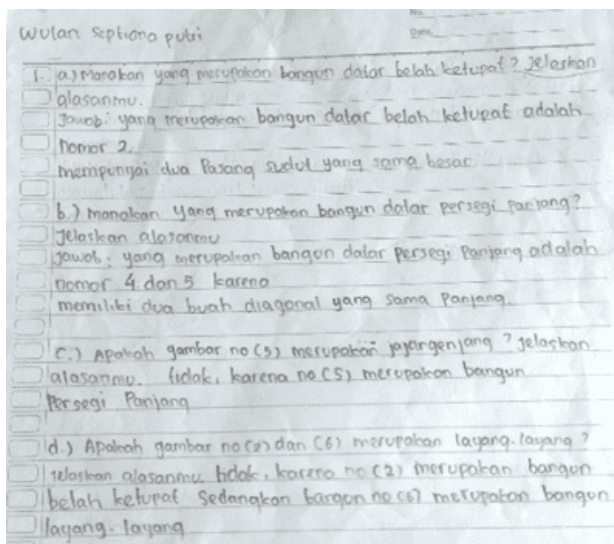 Wulan Septiana putri
No.
Date
1. a.) Manakan yang merupakan bangun datar belah ketupat? jelaskan
alasanmu.
Jawab: yang merupakan bangun datar belah ketupat adalah
nomor 2.
mempunyai dua Pasang sudut yang sama besar.
b.) manakan yang merupakan bangun datar persegi panjang?
Jelaskan alasanmu
Jawab: yang merupakan bangun datar persegi Panjang adalah
nomor 4 dan 5 karena
memiliki dua buah diagonal yang sama Panjang.
c.) Apakah gambar no (5) merupakan jajargenjang? jelaskan
alasanmu. tidak, karena no (5) merupakan bangun
Persegi Panjang
d.) Apakah gambar no (2) dan (6) merupakan layang-layang?
jelaskan alasanmu tidak, karena no (2) merupakan bangun
belah ketupat Sedangkan bangun no (6) merupakan bangun
layang-layang